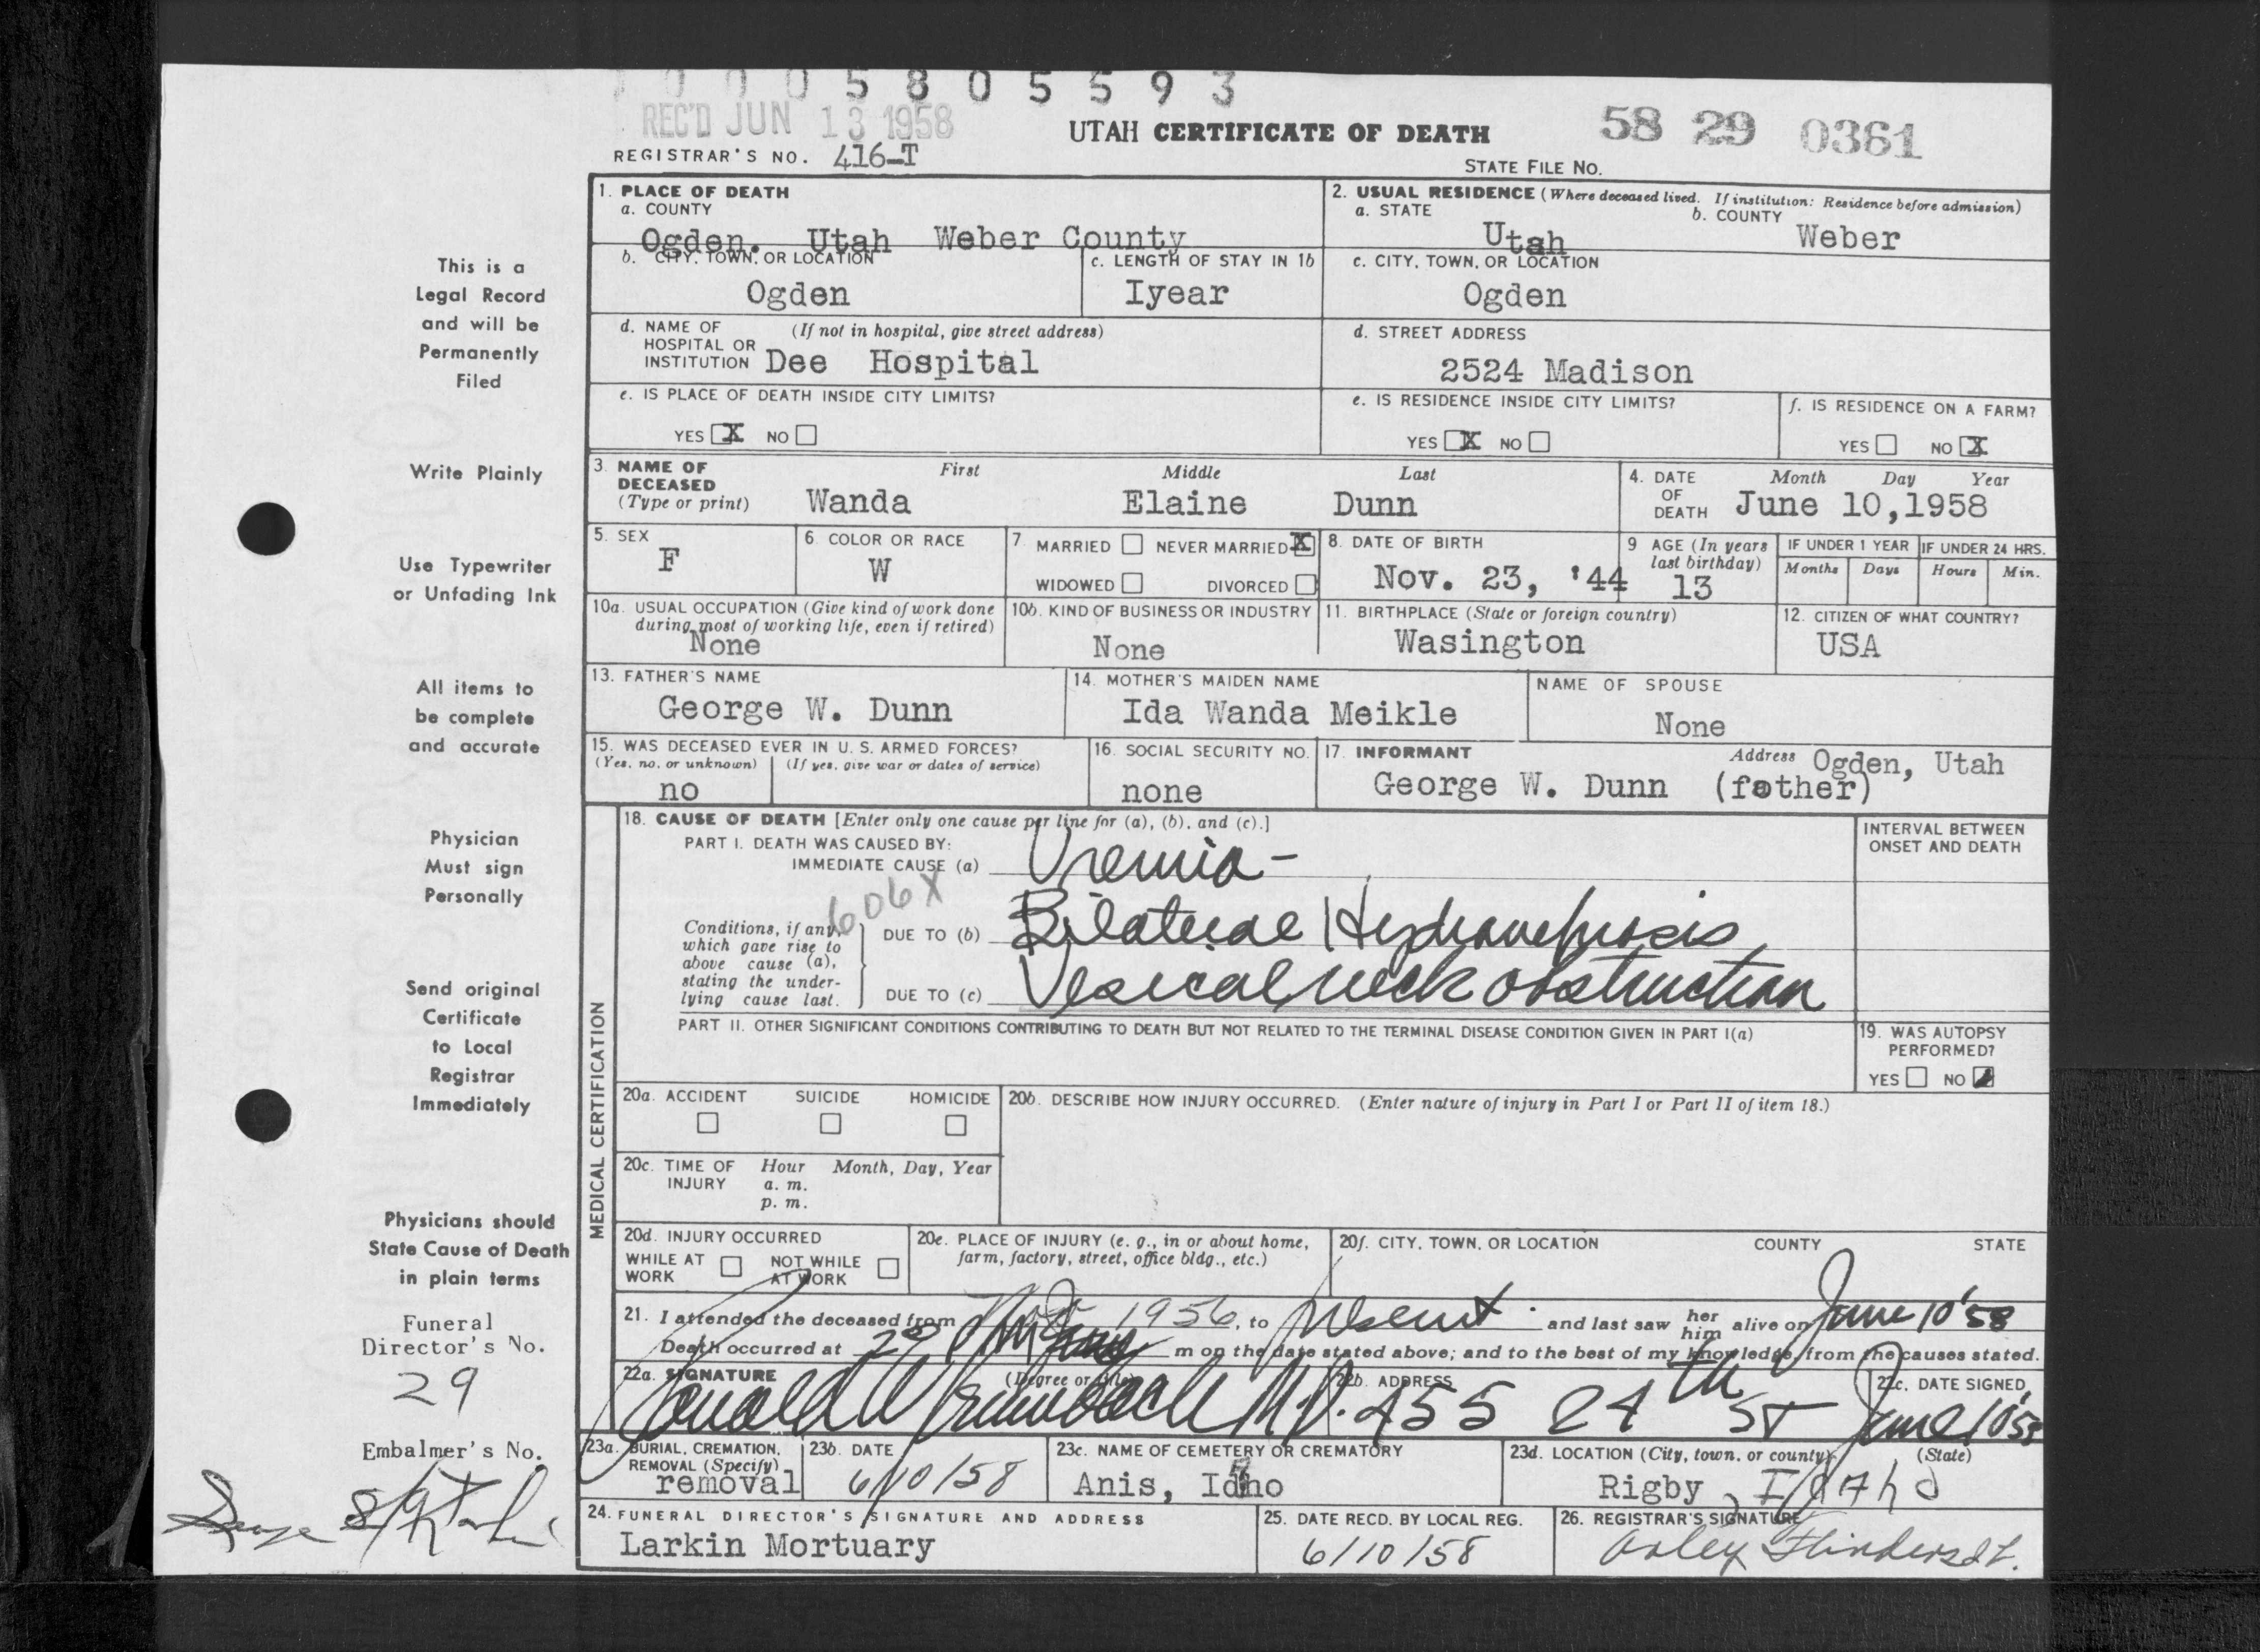 1 0 0 0 5 8 0 5 5 9 3
REC'D JUN 13 1958
UTAH CERTIFICATE OF DEATH
58 29 0361
REGISTRAR'S NO. 416-T
STATE FILE NO.
1. PLACE OF DEATH
a. COUNTY
Ogden. Utah Weber County
2. USUAL RESIDENCE (Where deceased lived. If institution: Residence before admission)
a. STATE b. COUNTY
Utah Weber
b. CITY, TOWN, OR LOCATION
Ogden
c. LENGTH OF STAY IN 1b
Iyear
c. CITY, TOWN, OR LOCATION
Ogden
d. NAME OF HOSPITAL OR INSTITUTION (If not in hospital, give street address)
Dee Hospital
d. STREET ADDRESS
2524 Madison
e. IS PLACE OF DEATH INSIDE CITY LIMITS?
YES X NO
e. IS RESIDENCE INSIDE CITY LIMITS?
YES X NO
f. IS RESIDENCE ON A FARM?
YES NO X
3. NAME OF DECEASED (Type or print)
First Middle Last
Wanda Elaine Dunn
4. DATE OF DEATH
Month Day Year
June 10,1958
5. SEX
F
6. COLOR OR RACE
W
7. MARRIED NEVER MARRIED X
WIDOWED DIVORCED
8. DATE OF BIRTH
Nov. 23, '44
9 AGE (In years last birthday)
13
IF UNDER 1 YEAR
Months Days
IF UNDER 24 HRS.
Hours Min.
10a. USUAL OCCUPATION (Give kind of work done during most of working life, even if retired)
None
10b. KIND OF BUSINESS OR INDUSTRY
None
11. BIRTHPLACE (State or foreign country)
Wasington
12. CITIZEN OF WHAT COUNTRY?
USA
13. FATHER'S NAME
George W. Dunn
14. MOTHER'S MAIDEN NAME
Ida Wanda Meikle
NAME OF SPOUSE
None
15. WAS DECEASED EVER IN U. S. ARMED FORCES?
(Yes, no, or unknown) (If yes, give war or dates of service)
no
16. SOCIAL SECURITY NO.
none
17. INFORMANT
George W. Dunn (father)
Address Ogden, Utah
MEDICAL CERTIFICATION
18. CAUSE OF DEATH [Enter only one cause per line for (a), (b), and (c).]
PART I. DEATH WAS CAUSED BY:
IMMEDIATE CAUSE (a) Uremia -
606X
Conditions, if any, which gave rise to above cause (a), stating the underlying cause last.
DUE TO (b) Bilateral Hydronephrosis
DUE TO (c) Vesical neck obstruction
INTERVAL BETWEEN ONSET AND DEATH
PART II. OTHER SIGNIFICANT CONDITIONS CONTRIBUTING TO DEATH BUT NOT RELATED TO THE TERMINAL DISEASE CONDITION GIVEN IN PART I(a)
19. WAS AUTOPSY PERFORMED?
YES NO
20a. ACCIDENT SUICIDE HOMICIDE
20b. DESCRIBE HOW INJURY OCCURRED. (Enter nature of injury in Part I or Part II of item 18.)
20c. TIME OF INJURY
Hour Month, Day, Year
a. m.
p. m.
20d. INJURY OCCURRED
WHILE AT WORK NOT WHILE AT WORK
20e. PLACE OF INJURY (e. g., in or about home, farm, factory, street, office bldg., etc.)
20f. CITY, TOWN, OR LOCATION COUNTY STATE
21. I attended the deceased from 1956, to present and last saw her him alive on June 10 '58
Death occurred at m on the date stated above; and to the best of my knowledge, from the causes stated.
22a. SIGNATURE (Degree or title)
M.D.
22b. ADDRESS
455 24th ST
22c. DATE SIGNED
June 10 '58
23a. BURIAL, CREMATION, REMOVAL (Specify)
removal
23b. DATE
6/10/58
23c. NAME OF CEMETERY OR CREMATORY
Anis, Idho
23d. LOCATION (City, town, or county) (State)
Rigby, Idaho
24. FUNERAL DIRECTOR'S SIGNATURE AND ADDRESS
Larkin Mortuary
25. DATE RECD. BY LOCAL REG.
6/10/58
26. REGISTRAR'S SIGNATURE
This is a
Legal Record
and will be
Permanently
Filed
Write Plainly
Use Typewriter
or Unfading Ink
All items to
be complete
and accurate
Physician
Must sign
Personally
Send original
Certificate
to Local
Registrar
Immediately
Physicians should
State Cause of Death
in plain terms
Funeral
Director's No.
29
Embalmer's No.